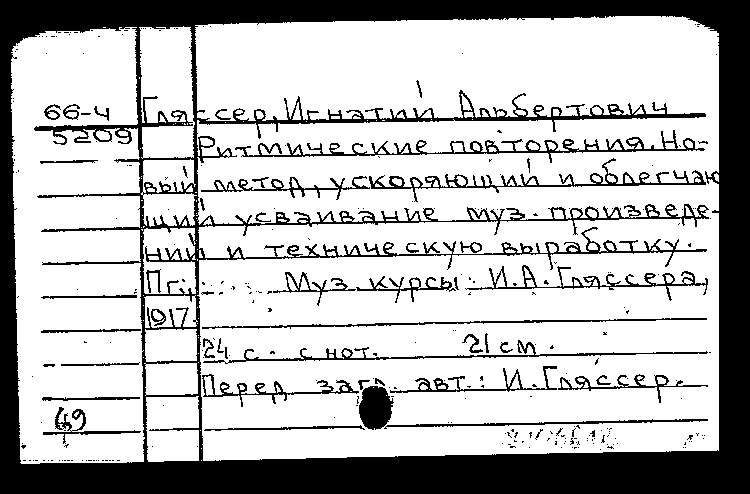 66-4 Гляссер, Игнатий Альбертович
5209 Ритмические повторения. Но-
вый метод, ускоряющий и облегчаю
щий усваивание муз. произведе-
ний и техническую выработку.
Пг., Муз. курсы И.А. Гляссера,
1917.
24 с. с нот. 21 см.
Перед загл. авт.: И. Гляссер.
69